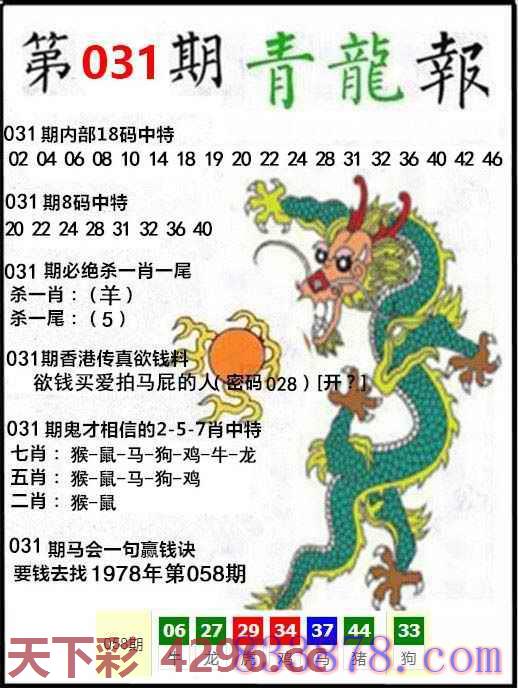 第031期青龍報
031期内部18码中特
02 04 06 08 10 14 18 19 20 22 24 28 31 32 36 40 42 46
031期8码中特
20 22 24 28 31 32 36 40
031期必绝杀一肖一尾
杀一肖：（羊）
杀一尾：（5）
031期香港传真欲钱料
欲钱买爱拍马屁的人(密码028）[开？]
031期鬼才相信的2-5-7肖中特
七肖：猴-鼠-马-狗-鸡-牛-龙
五肖：猴-鼠-马-狗-鸡
二肖：猴-鼠
031期马会一句赢钱诀
要钱去找1978年第058期
058期 06 27 29 34 37 44 33
牛 龙 虎 鸡 马 猪 狗
天下彩 4296.cc